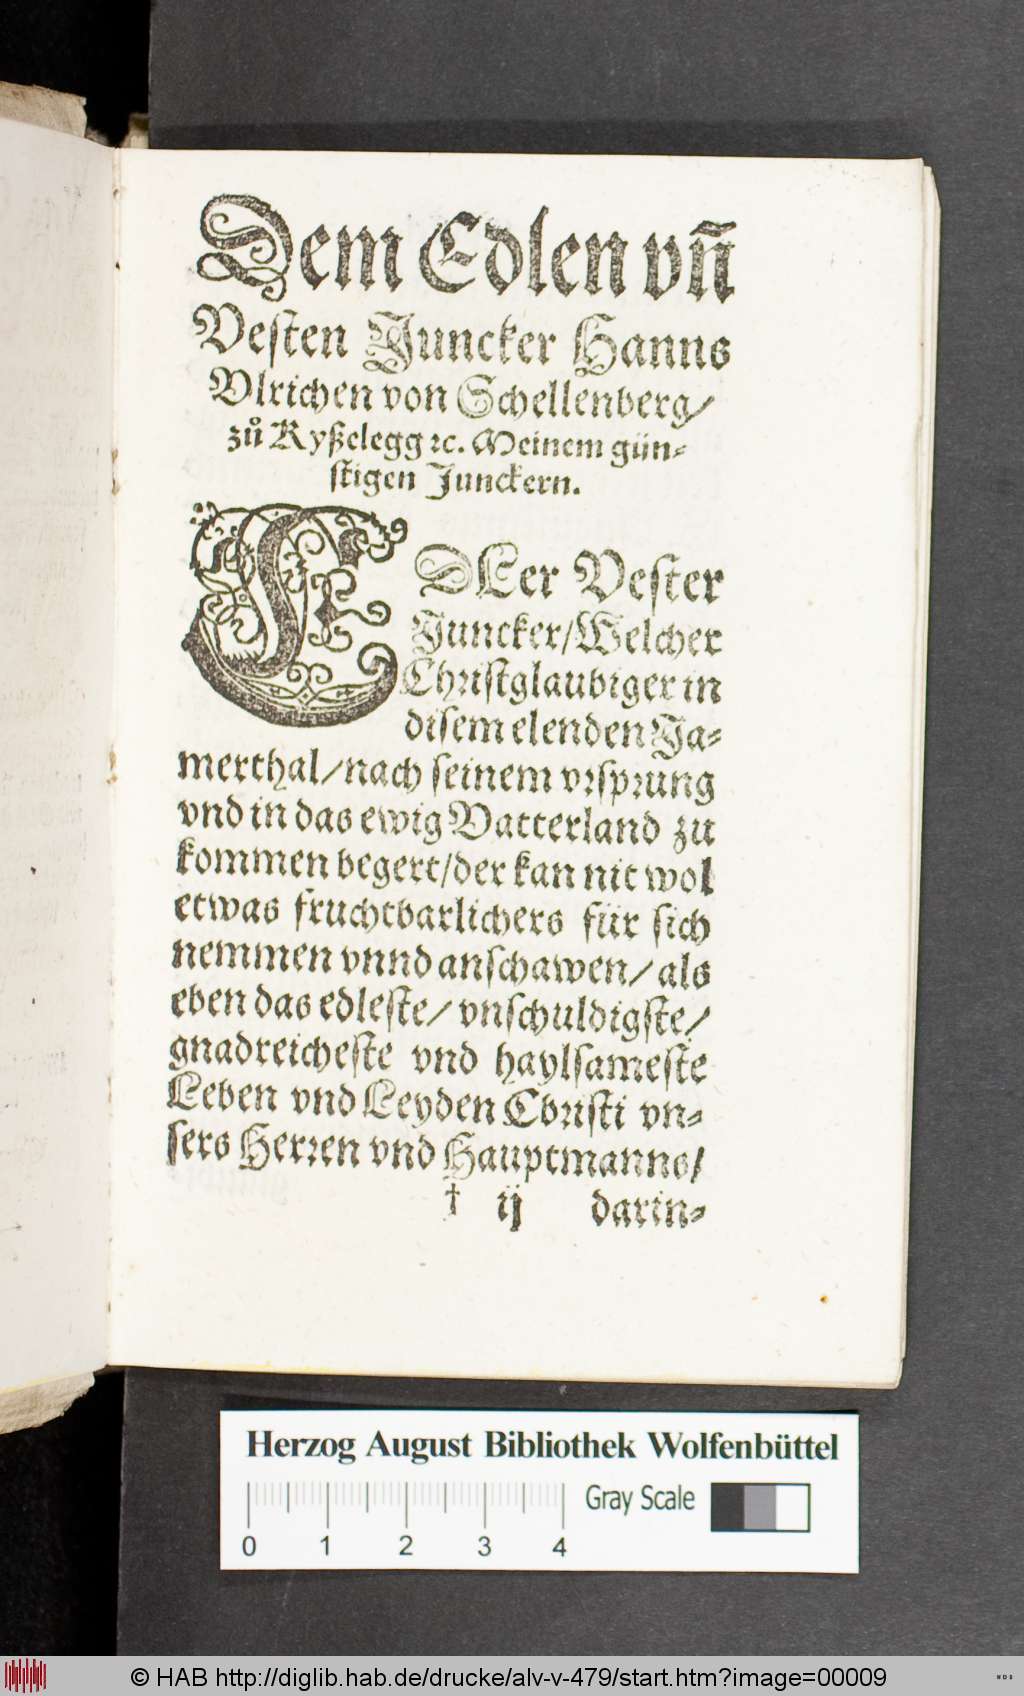 Dem Edlen vñ
Vesten Juncker Hanns
Vlrichen von Schellenberg/
zů Kyßelegg ꝛc. Meinem gün-
stigen Junckern.
EDLer Vester
Juncker/Welcher
Christglaubiger in
disem elenden Ja-
merthal/nach seinem vrsprung
vnd in das ewig Vatterland zu
kommen begert/der kan nit wol
etwas fruchtbarlichers für sich
nemmen vnnd anschawen/ als
eben das edleste/ vnschuldigste/
gnadreicheste vnd haylsameste
Leben vnd Leyden Christi vn-
sers Herren vnd Hauptmanns/
† ij darin-
Herzog August Bibliothek Wolfenbüttel
Gray Scale
0 1 2 3 4
© HAB http://diglib.hab.de/drucke/alv-v-479/start.htm?image=00009